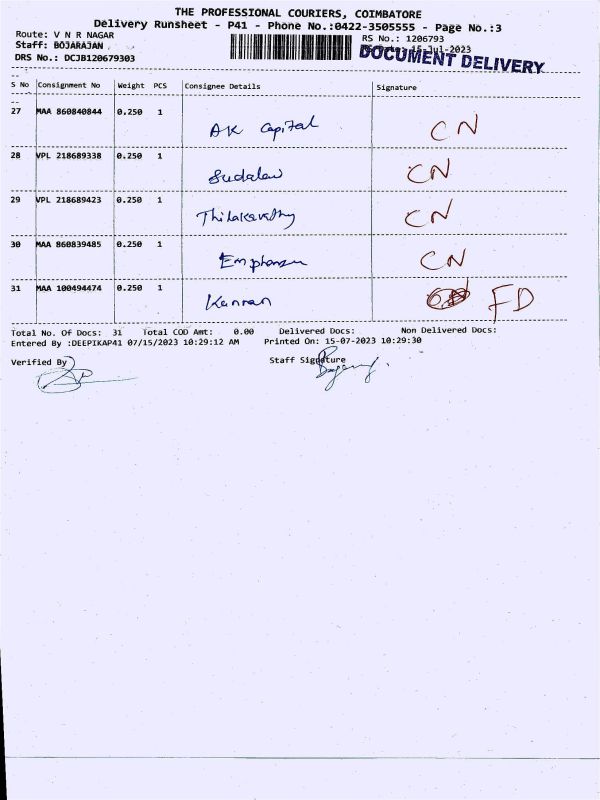 THE PROFESSIONAL COURIERS, COIMBATORE
Delivery Runsheet - P41 - Phone No.:0422-3505555 - Page No.:3
Route: V N R NAGAR
RS No.: 1206793
Staff: BOJARAJAN
15-Jul-2023
DOCUMENT DELIVERY
DRS No.: DCJB120679303
S No Consignment No Weight PCS Consignee Details Signature
27 MAA 860840844 0.250 1 AK Capital CN
28 VPL 218689338 0.250 1 CN
29 VPL 218689423 0.250 1 CN
30 MAA 860839485 0.250 1 CN
31 MAA 100494474 0.250 1 Kannan FD
Total No. Of Docs: 31 Total COD Amt: 0.00 Delivered Docs: Non Delivered Docs:
Entered By :DEEPIKAP41 07/15/2023 10:29:12 AM Printed On: 15-07-2023 10:29:30
Verified By Staff Signature